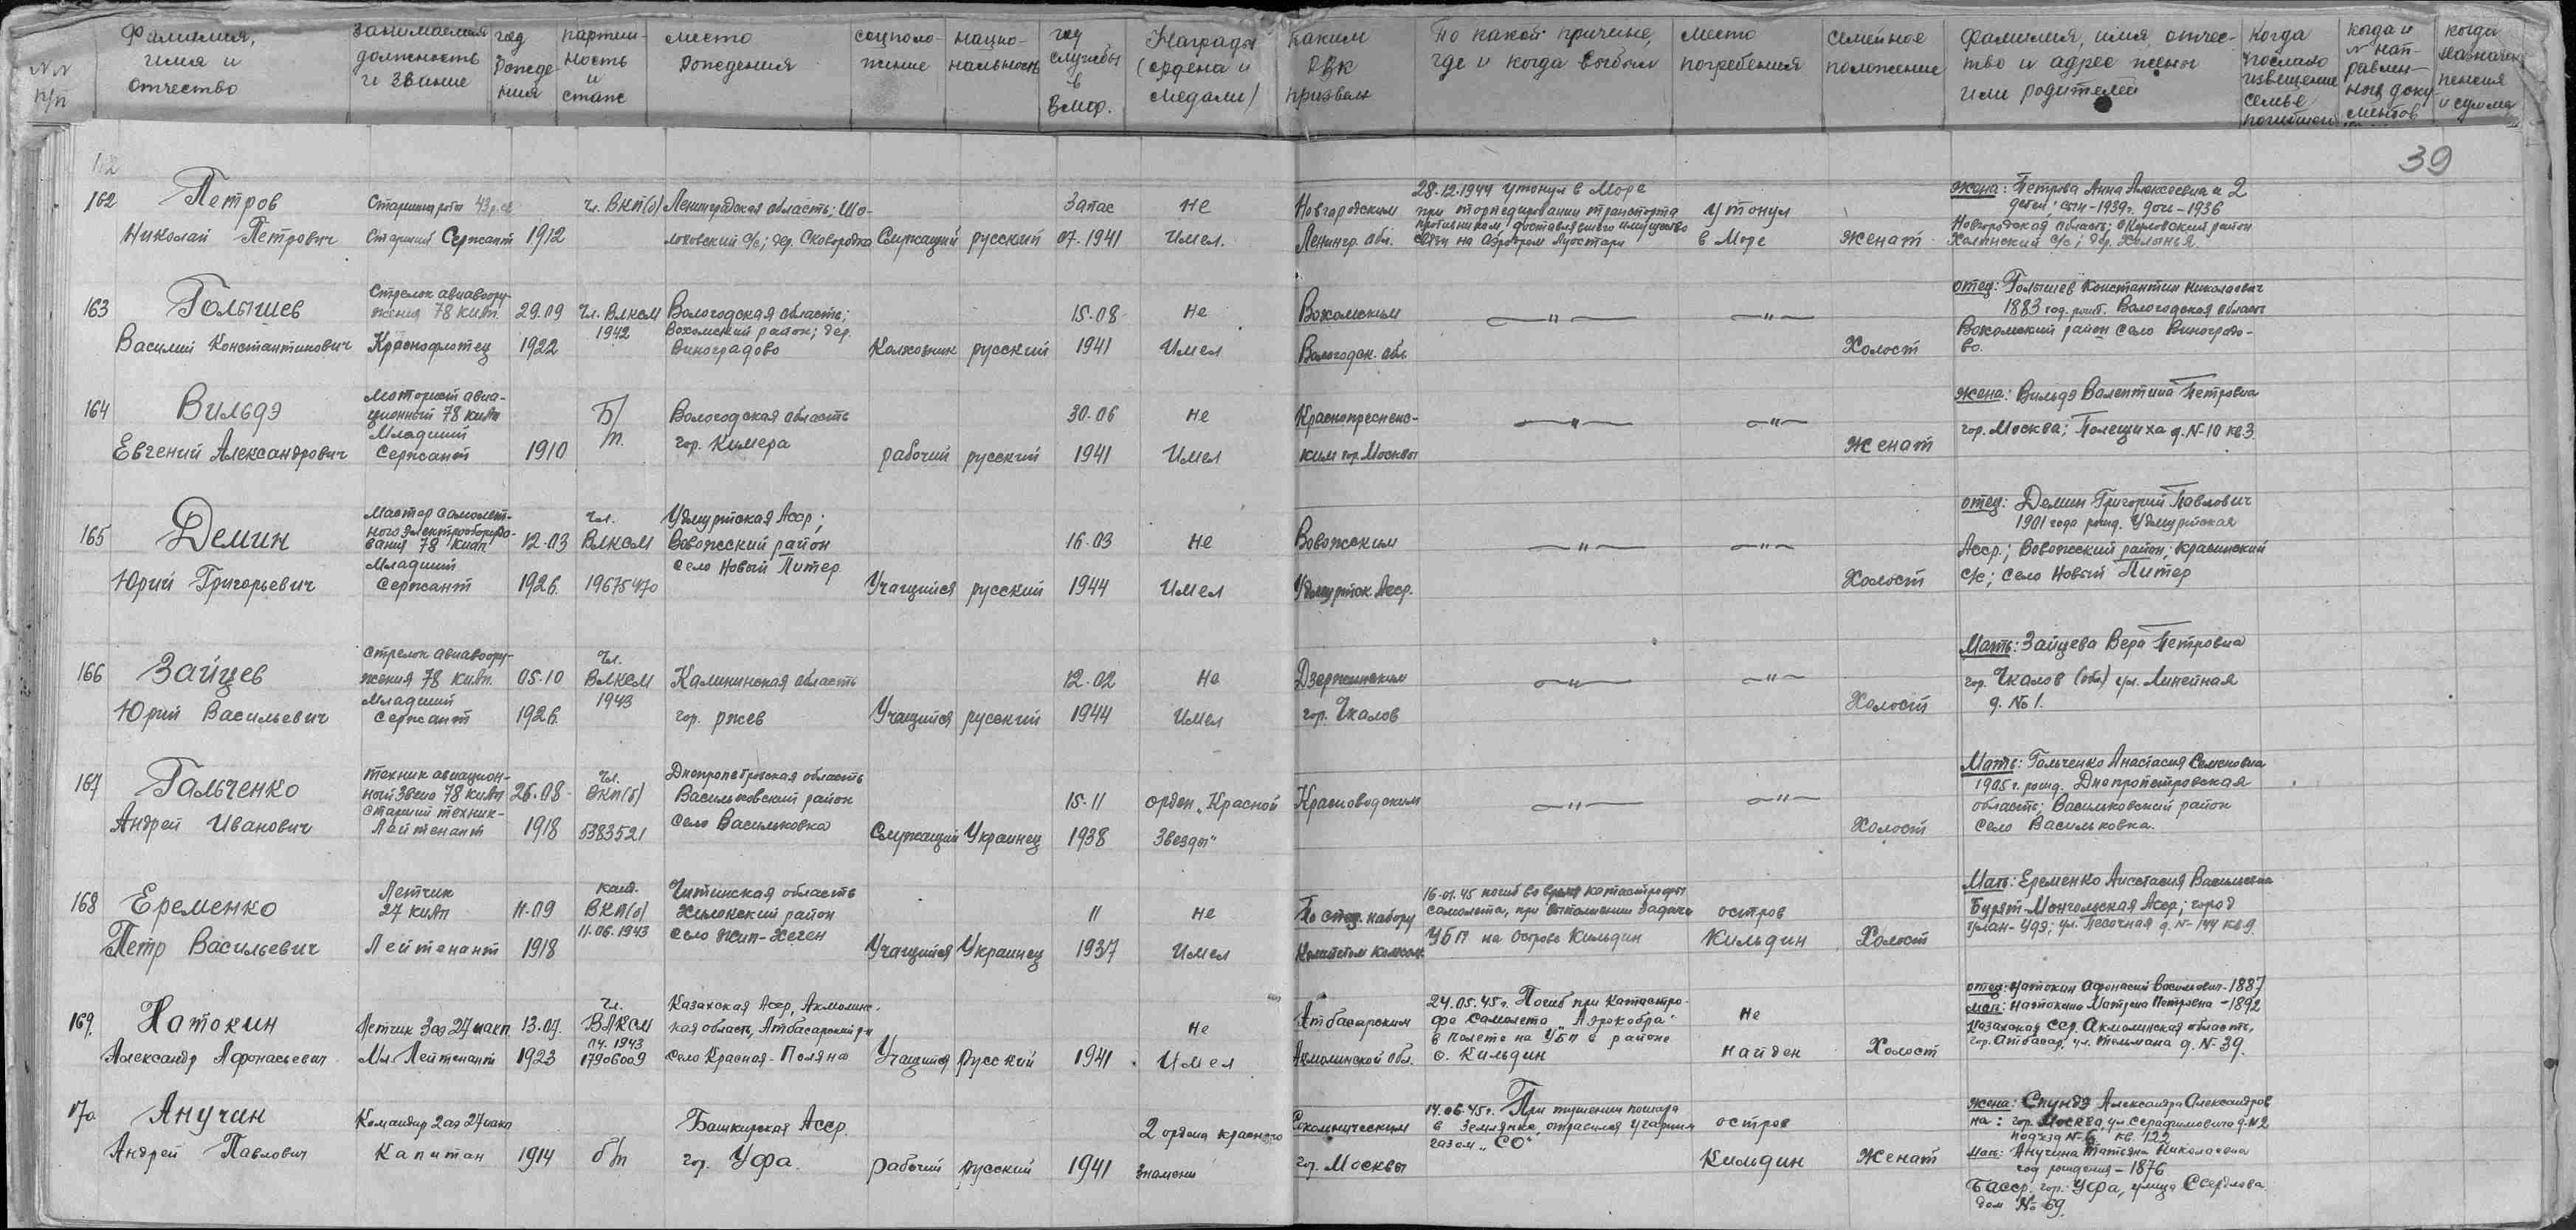 NN п/п
Фамилия, имя и отчество
Занимаемая должность и звание
год рождения
партийность и стаж
место рождения
соцположение
национальность
год службы в ВМФ.
Награды (ордена и медали)
каким РВК призван
По какой причине, где и когда выбыл
место погребения
семейное положение
Фамилия, имя, отчество и адрес жены или родителей
Когда послано извещение семье погибшего
когда и N направленных документов
когда назначена пенсия и сумма
39
162
Петров
Николай Петрович
Старшина роты
Старший Сержант
1912
чл. ВКП(б)
Ленинградская область;
с/с; дер. Сковородка
Служащий
русский
Запас
07.1941
Не
Имел.
Новгородским
Ленингр. обл.
28.12.1944 утонул в Море
при торпедировании транспорта
противником, доставлявшего имущество
связи на аэродром Луостари
утонул
в Море
Женат
Жена: Петрова Анна Алексеевна и 2
детей; сын-1939г. дочь-1936
Новгородская область; район
Холынский с/с; дер. Холынья
163
Голышев
Василий Константинович
Стрелок авиавоору-
жения 78 КИАП.
Краснофлотец
29.09
1922
Чл. ВЛКСМ
1942
Вологодская область;
Вохомский район; дер.
Виноградово
Колхозник
русский
15.08
1941
Не
Имел
Вохомским
Вологодск. обл.
—"—
—"—
Холост
отец: Голышев Константин Николаевич
1883 год. рожд. Вологодская область
Вохомский район село Виноградо-
во.
164
Вильдэ
Евгений Александрович
Моторист авиа-
ционный 78 КИАП
Младший
Сержант
1910
Б/п.
Вологодская область
гор. Кимера
рабочий
русский
30.06
1941
Не
Имел
Краснопресненс-
ким гор. Москвы
—"—
—"—
Женат
Жена: Вильдэ Валентина Петровна
гор. Москва; Полещиха д. N-10 кв. 3.
165
Демин
Юрий Григорьевич
Мастер самолет-
ного электрооборудо-
вания 78 КИАП
Младший
Сержант
12.03
1926.
Чл.
ВЛКСМ
19675470
Удмуртская Асср;
Вовожский район
село Новый Питер
Учащийся
русский
16.03
1944
Не
Имел
Вовожским
Удмуртск. Асср.
—"—
—"—
Холост
отец: Демин Григорий Павлович
1901 года рожд. Удмуртская
Асср.; Вовожский район;
с/с; село Новый Питер
166
Зайцев
Юрий Васильевич
стрелок авиавоору-
жения 78 КИАП.
Младший
Сержант
05.10
1926.
Чл.
ВЛКСМ
1943
Калининская область
гор. ржев
Учащийся
русский
12.02
1944
Не
Имел
Дзержинским
гор. Чкалов
—"—
—"—
Холост
Мать: Зайцева Вера Петровна
гор. Чкалов (обл.) ул. Линейная
д. № 1.
167
Гальченко
Андрей Иванович
техник авиацион-
ный звена 78 КИАП
Старший техник-
Лейтенант
26.08
1918
Чл.
ВКП(б)
5383521
Днепропетровская область
Васильковский район
село Васильковка
Служащий
Украинец
15.11
1938
орден „Красной
Звезды"
Красноводским
—"—
—"—
Холост
Мать: Гальченко Анастасия Семеновна
1905 г. рожд. Днепропетровская
область; Васильковский район
село Васильковка.
168
Еременко
Петр Васильевич
Летчик
27 КИАП
Лейтенант
11.09
1918
канд.
ВКП(б)
11.06.1943
Читинская область
Хилокский район
село Жип-Хеген
Учащийся
Украинец
11
1937
не
Имел
По спец. набору
Комитетом комсом.
16.01.45 погиб во время катастрофы
самолета, при выполнении задачи
УБП на Острове Кильдин
остров
Кильдин
Холост
Мать: Еременко Анастасия Васильевна
Бурят-Монгольская Асср; город
Улан-Удэ; ул. Песочная д. N-144 кв 9.
169.
Натокин
Александр Афонасьевич
Летчик 3аэ 27 иакп
Мл. Лейтенант
13.07.
1923
Чл.
ВЛКСМ
1943
17906009
Казахская Асср, Акмолинс-
кая область, Атбасарский р-н
село Красная-Поляна
Учащийся
Русский
1941
Не
Имел
Атбасарским
Акмолинской обл.
24.05.45г. Погиб при катастро-
фе самолета „Аэрокобра"
в полете на УБП в районе
о. Кильдин
Не
найден
Холост
отец: Натокин Афонасий - 1887
мать: Натокина Матрена Петровна - 1892
Казахская ССР, Акмолинская область,
гор. Атбасар, ул. Тельмана д. N-39.
170
Анучин
Андрей Павлович
Командир 2аэ 27 иакп
Капитан
1914
б/п
Башкирская Асср.
гор. Уфа.
рабочий
Русский
1941
2 ордена красного
знамени
Сокольническим
гор. Москвы
14.06.45г. При тушении пожара
в землянке, отравился угарным
газом „СО"
остров
Кильдин
Женат
Жена: Спундэ Александра Александров
на: гор. Москва, ул. Серафимовича д. N2
подъезд N-6 кв. 122
мать: Анучина Татьяна Николаевна
год рождения - 1876
БАССР. гор. Уфа, улица Свердлова
дом № 69.